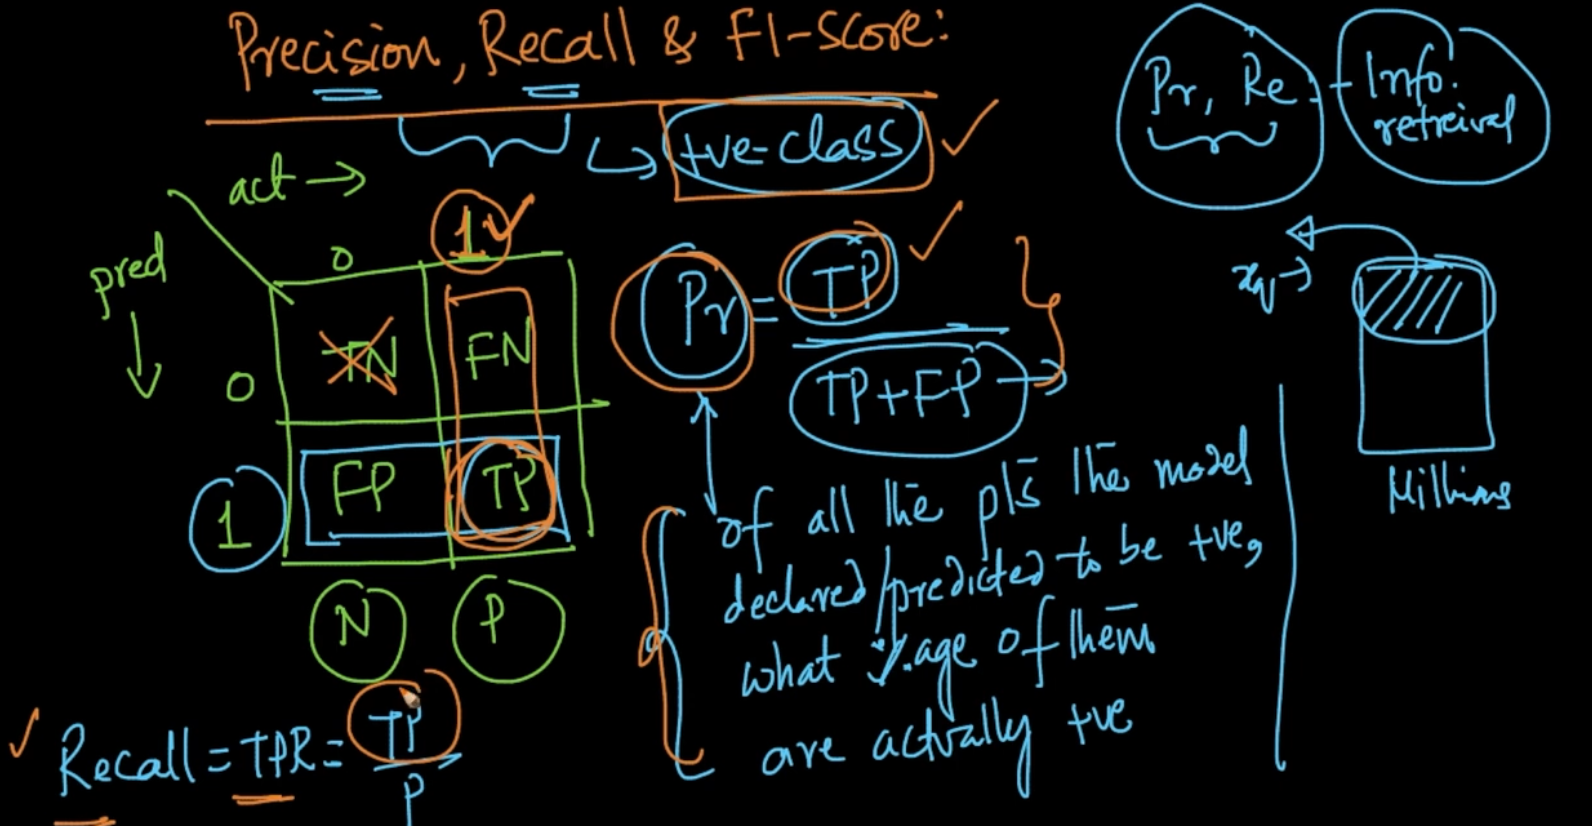 Precision, Recall & F1-Score:
Pr, Re - Info.
retreival
+ve-class
act →
pred
0 1
0 TN FN
1 FP TP
N P
Pr = TP
TP+FP
xq →
Millions
of all the pts the model
declared/predicted to be +ve,
what %age of them
are actually +ve
Recall = TPR = TP
P